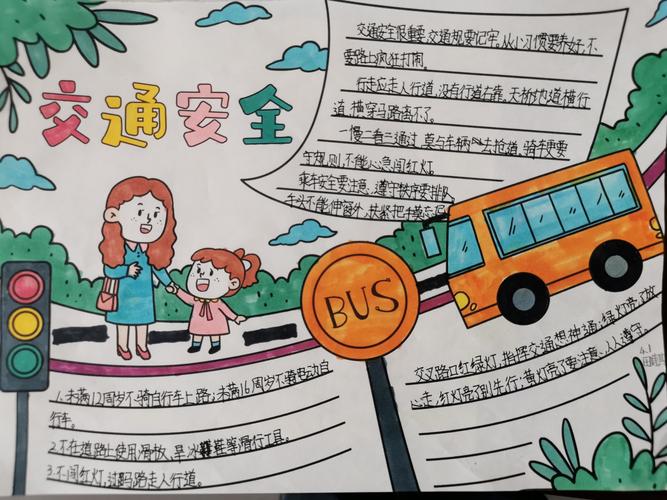 交通安全
交通安全很重要,交通规要记牢。从小习惯要养好,不
要路上疯狂打闹。
行走应走人行道,没有行道右靠。天桥地道横行
道,横穿马路离不了。
一慢二看三通过,莫与车辆去抢道。骑车更要
守规则,不能心急闯红灯。
乘车安全要注意,遵守秩序要排队。
手头不能伸窗外,扶紧把手莫忘
BUS
1.未满12周岁不骑自行车上路;未满16周岁不骑电动自
行车。
2.不在道路上使用滑板、旱冰鞋等滑行工具。
3.不闯红灯,过马路走人行道。
交叉路口红绿灯,指挥交通想神通;绿灯亮了放
心走,红灯亮了别先行;黄灯亮了要注意,人人遵守。
4.1